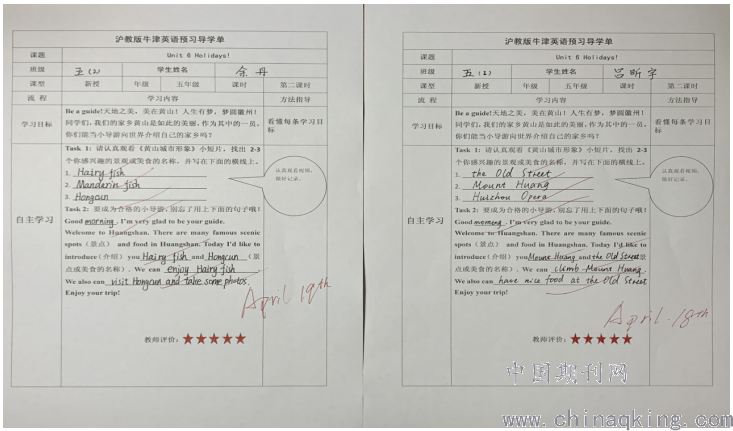 沪教版牛津英语预习导学单
课题 Unit 6 Holidays!
班级 五(2) 学生姓名 余丹
课型 新授 年级 五年级 课时 第二课时
流程 学习内容 方法指导
学习目标
Be a guide!天地之美，美在黄山！人生有梦，梦圆徽州！
同学们，我们的家乡黄山是如此的美丽，作为其中的一员，
你们能当小导游向世界介绍自己的家乡吗？
看懂每条学习目标
自主学习
Task 1: 请认真观看《黄山城市形象》小短片，找出 2-3
个你感兴趣的景观或美食的名称，并写在下面的横线上。
1. Hairy fish
2. Mandarin fish
3. Hongcun
认真观看视频，
做好记录。
Task 2: 要成为合格的小导游，别忘了用上下面的句子哦！
Good morning. I'm very glad to be your guide.
Welcome to Huangshan. There are many famous scenic
spots（景点） and food in Huangshan. Today I'd like to
introduce（介绍）you Hairy fish and Hongcun （景
点或美食的名称）. We can enjoy Hairy fish
We also can visit Hongcun and take some photos.
Enjoy your trip!
April 19th
教师评价：★★★★★
沪教版牛津英语预习导学单
课题 Unit 6 Holidays!
班级 五(1) 学生姓名 吕昕宇
课型 新授 年级 五年级 课时 第二课时
流程 学习内容 方法指导
学习目标
Be a guide!天地之美，美在黄山！人生有梦，梦圆徽州！
同学们，我们的家乡黄山是如此的美丽，作为其中的一员，
你们能当小导游向世界介绍自己的家乡吗？
看懂每条学习目标
自主学习
Task 1: 请认真观看《黄山城市形象》小短片，找出 2-3
个你感兴趣的景观或美食的名称，并写在下面的横线上。
1. the Old Street
2. Mount Huang
3. Huizhou Opera
认真观看视频，
做好记录。
Task 2: 要成为合格的小导游，别忘了用上下面的句子哦！
Good morning. I'm very glad to be your guide.
Welcome to Huangshan. There are many famous scenic
spots（景点） and food in Huangshan. Today I'd like to
introduce（介绍）you Mount Huang and the Old Street（景
点或美食的名称）. We can climb Mount Huang.
We also can have nice food at the Old Street
Enjoy your trip!
April 18th
教师评价：★★★★★
中国期刊网
www.chinaqking.com